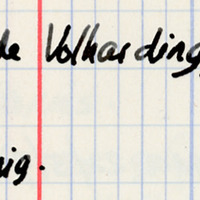 de Volharding
nig.